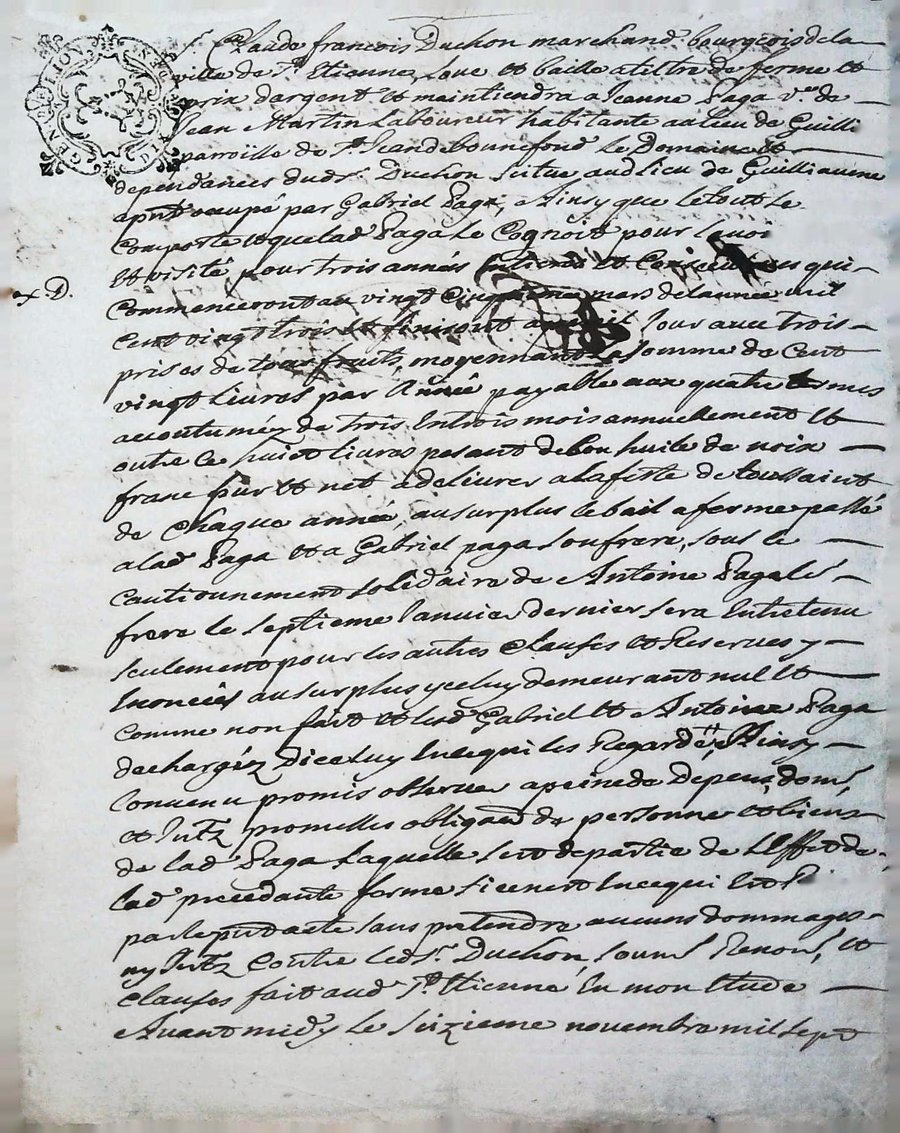 GEN DVLION DIX DEN
Sr. Claude francois Duchon marchand bourgeois de la
ville de St. Etienne, loue et baille a tiltre de ferme et
prix dargent et maintiendra a Jeanne Paga ve. de
Jean Martin Laboureur habitante au lieu de Guilli
parroisse de St. Jean de bonnefond le Domaine et
dependances dudt. Duchon scitue aud lieu de Guilli
apnt occupé par Gabriel Paga, Ainsy que le tout se
comporte et que lad Paga le Cognoit pour lavoir
et visité, pour trois années Entieres et Consecutives qui
x D.
commenceront au vingt Cinquieme mars de lannee mil
cent vingt trois et finiront a pareil Jour avec trois
prises de tous fruits, moyennant la somme de Cent
vingt livres par Année payable aux quatre termes
accoutumés de trois En trois mois annuellement Et
outre ce huict livres pesant de bon huile de noix
franc pur et net a delivrer a la feste de toussaint
de chaque année, au surplus le bail a ferme passé
a lad Paga et a Gabriel paga son frere, sous le
Cautionnement solidaire de Antoine Paga
frere le septieme Janvier dernier sera Entretenu
seulement pour les autres Clauses et Reserves y
Enoncées au surplus yceluy demeurant nul et
comme non fait et lesd Gabriel et Antoine Paga
dechargéz Diceluy En ce qui les Regarde, Ainsy
Convenu promis observer a peine de Depens, doms
et Jntz promesses obligaõn de personne et biens
de lad Paga Laquelle sest departie de L'Effet de
lad precedante ferme si ce nest En ce qui Est
par le pnt acte sans pretendre aucuns dommages
ny Jntz contre led Sr. Duchon, soums Renons, et
clauses fait aud St. Etienne En mon Etude
Avant midy le seizieme novembre mil sept